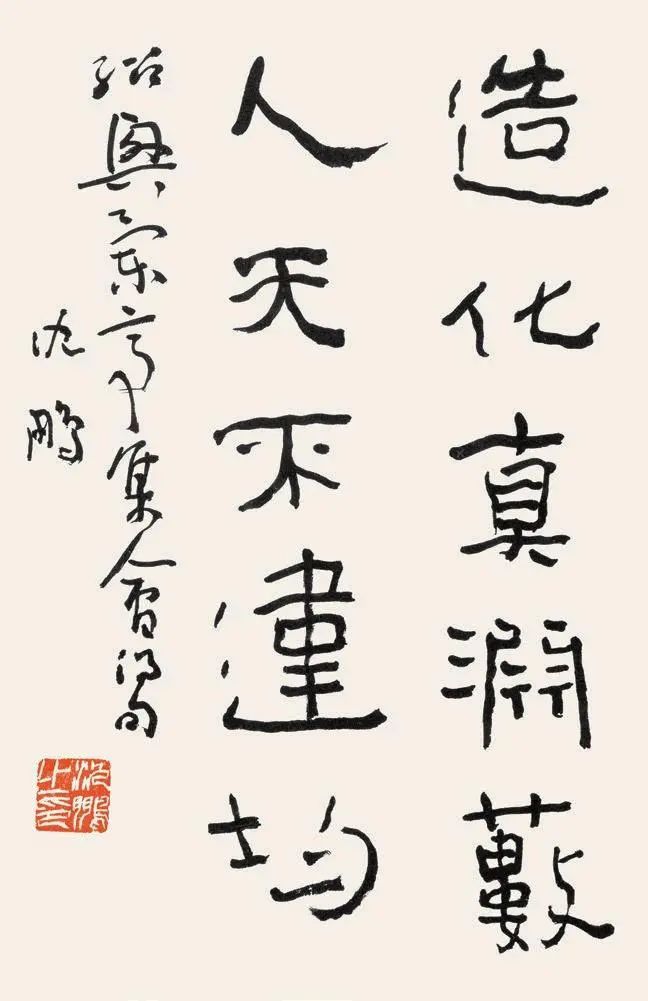 造化真淵藪
人天不違均
紹興蘭亭集會得句
沈鵬
沈鵬之印